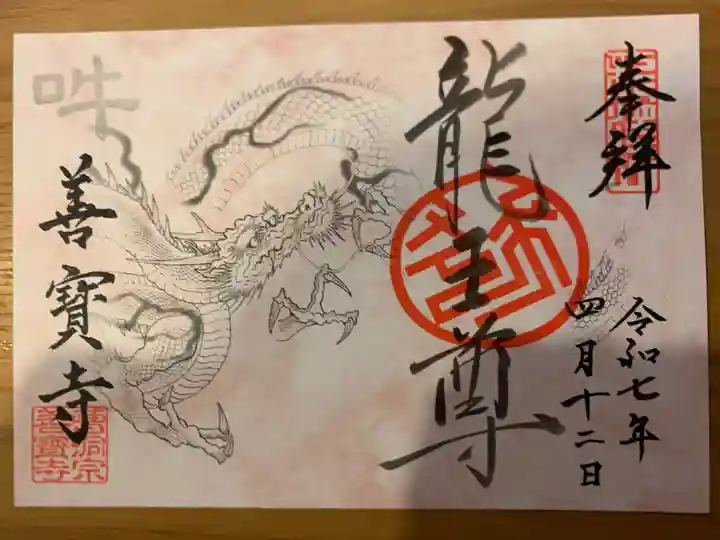 奉拝
令和七年
四月十二日
龍王尊
善寳寺
曹洞宗
善寳寺